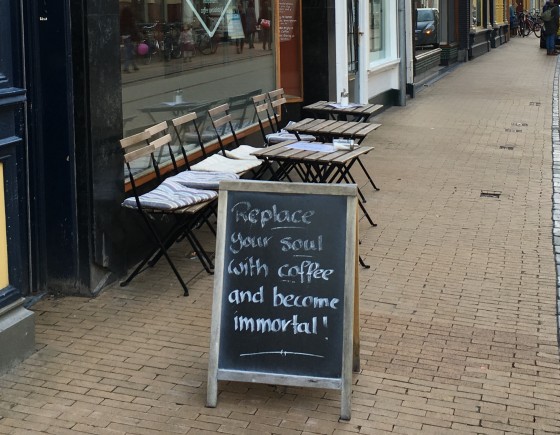 Replace
your soul
with coffee
and become
immortal!